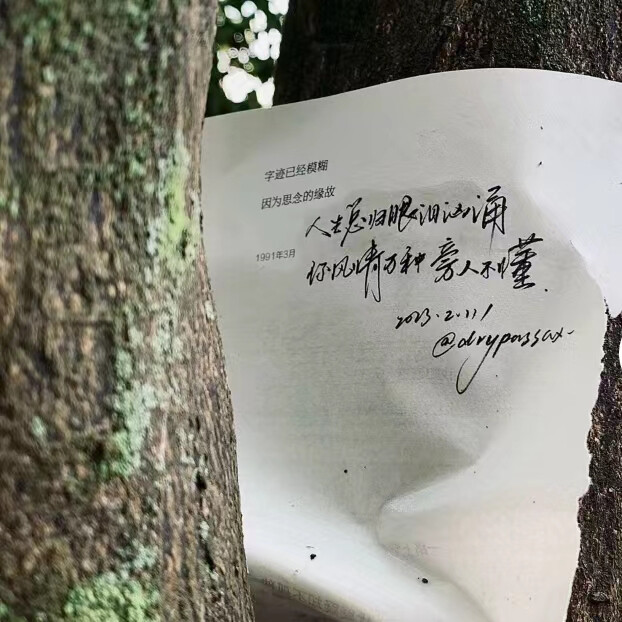 字迹已经模糊
因为思念的缘故
1991年3月
人生总归眼泪汹涌
你风情万种 旁人不懂
2023.2.11
@drypassax